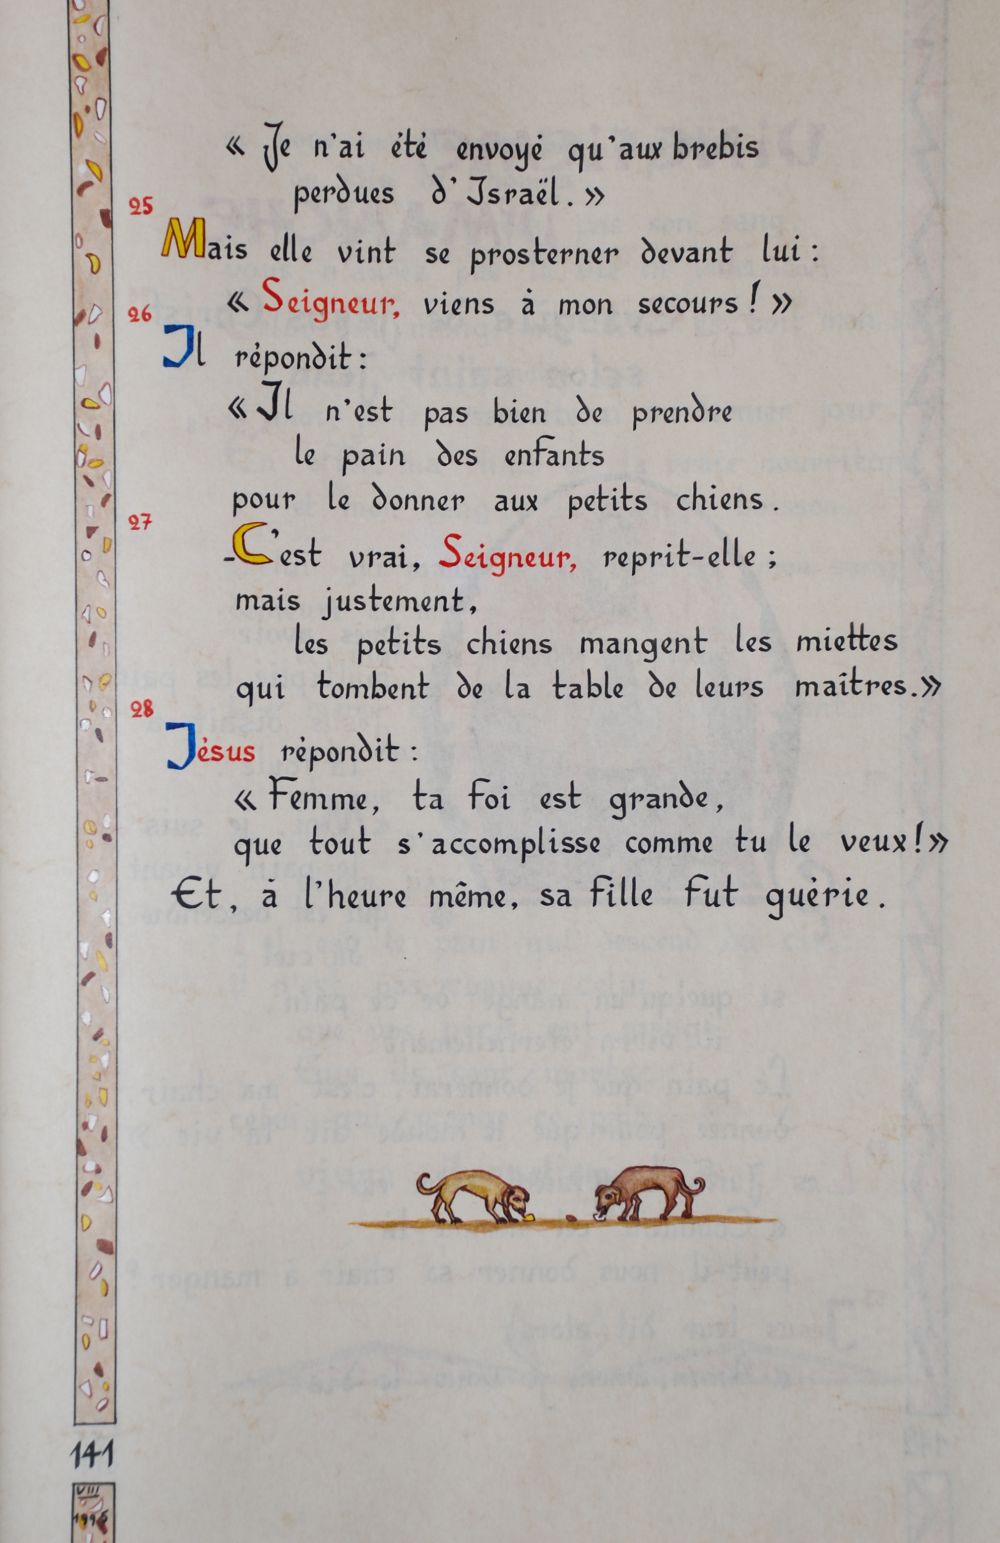 « Je n'ai été envoyé qu'aux brebis
perdues d'Israël. »
25
Mais elle vint se prosterner devant lui :
« Seigneur, viens à mon secours ! »
26
Il répondit :
« Il n'est pas bien de prendre
le pain des enfants
pour le donner aux petits chiens.
27
-C'est vrai, Seigneur, reprit-elle ;
mais justement,
les petits chiens mangent les miettes
qui tombent de la table de leurs maîtres.»
28
Jésus répondit :
« Femme, ta foi est grande,
que tout s'accomplisse comme tu le veux!»
Et, à l'heure même, sa fille fut guérie.
141
VIII